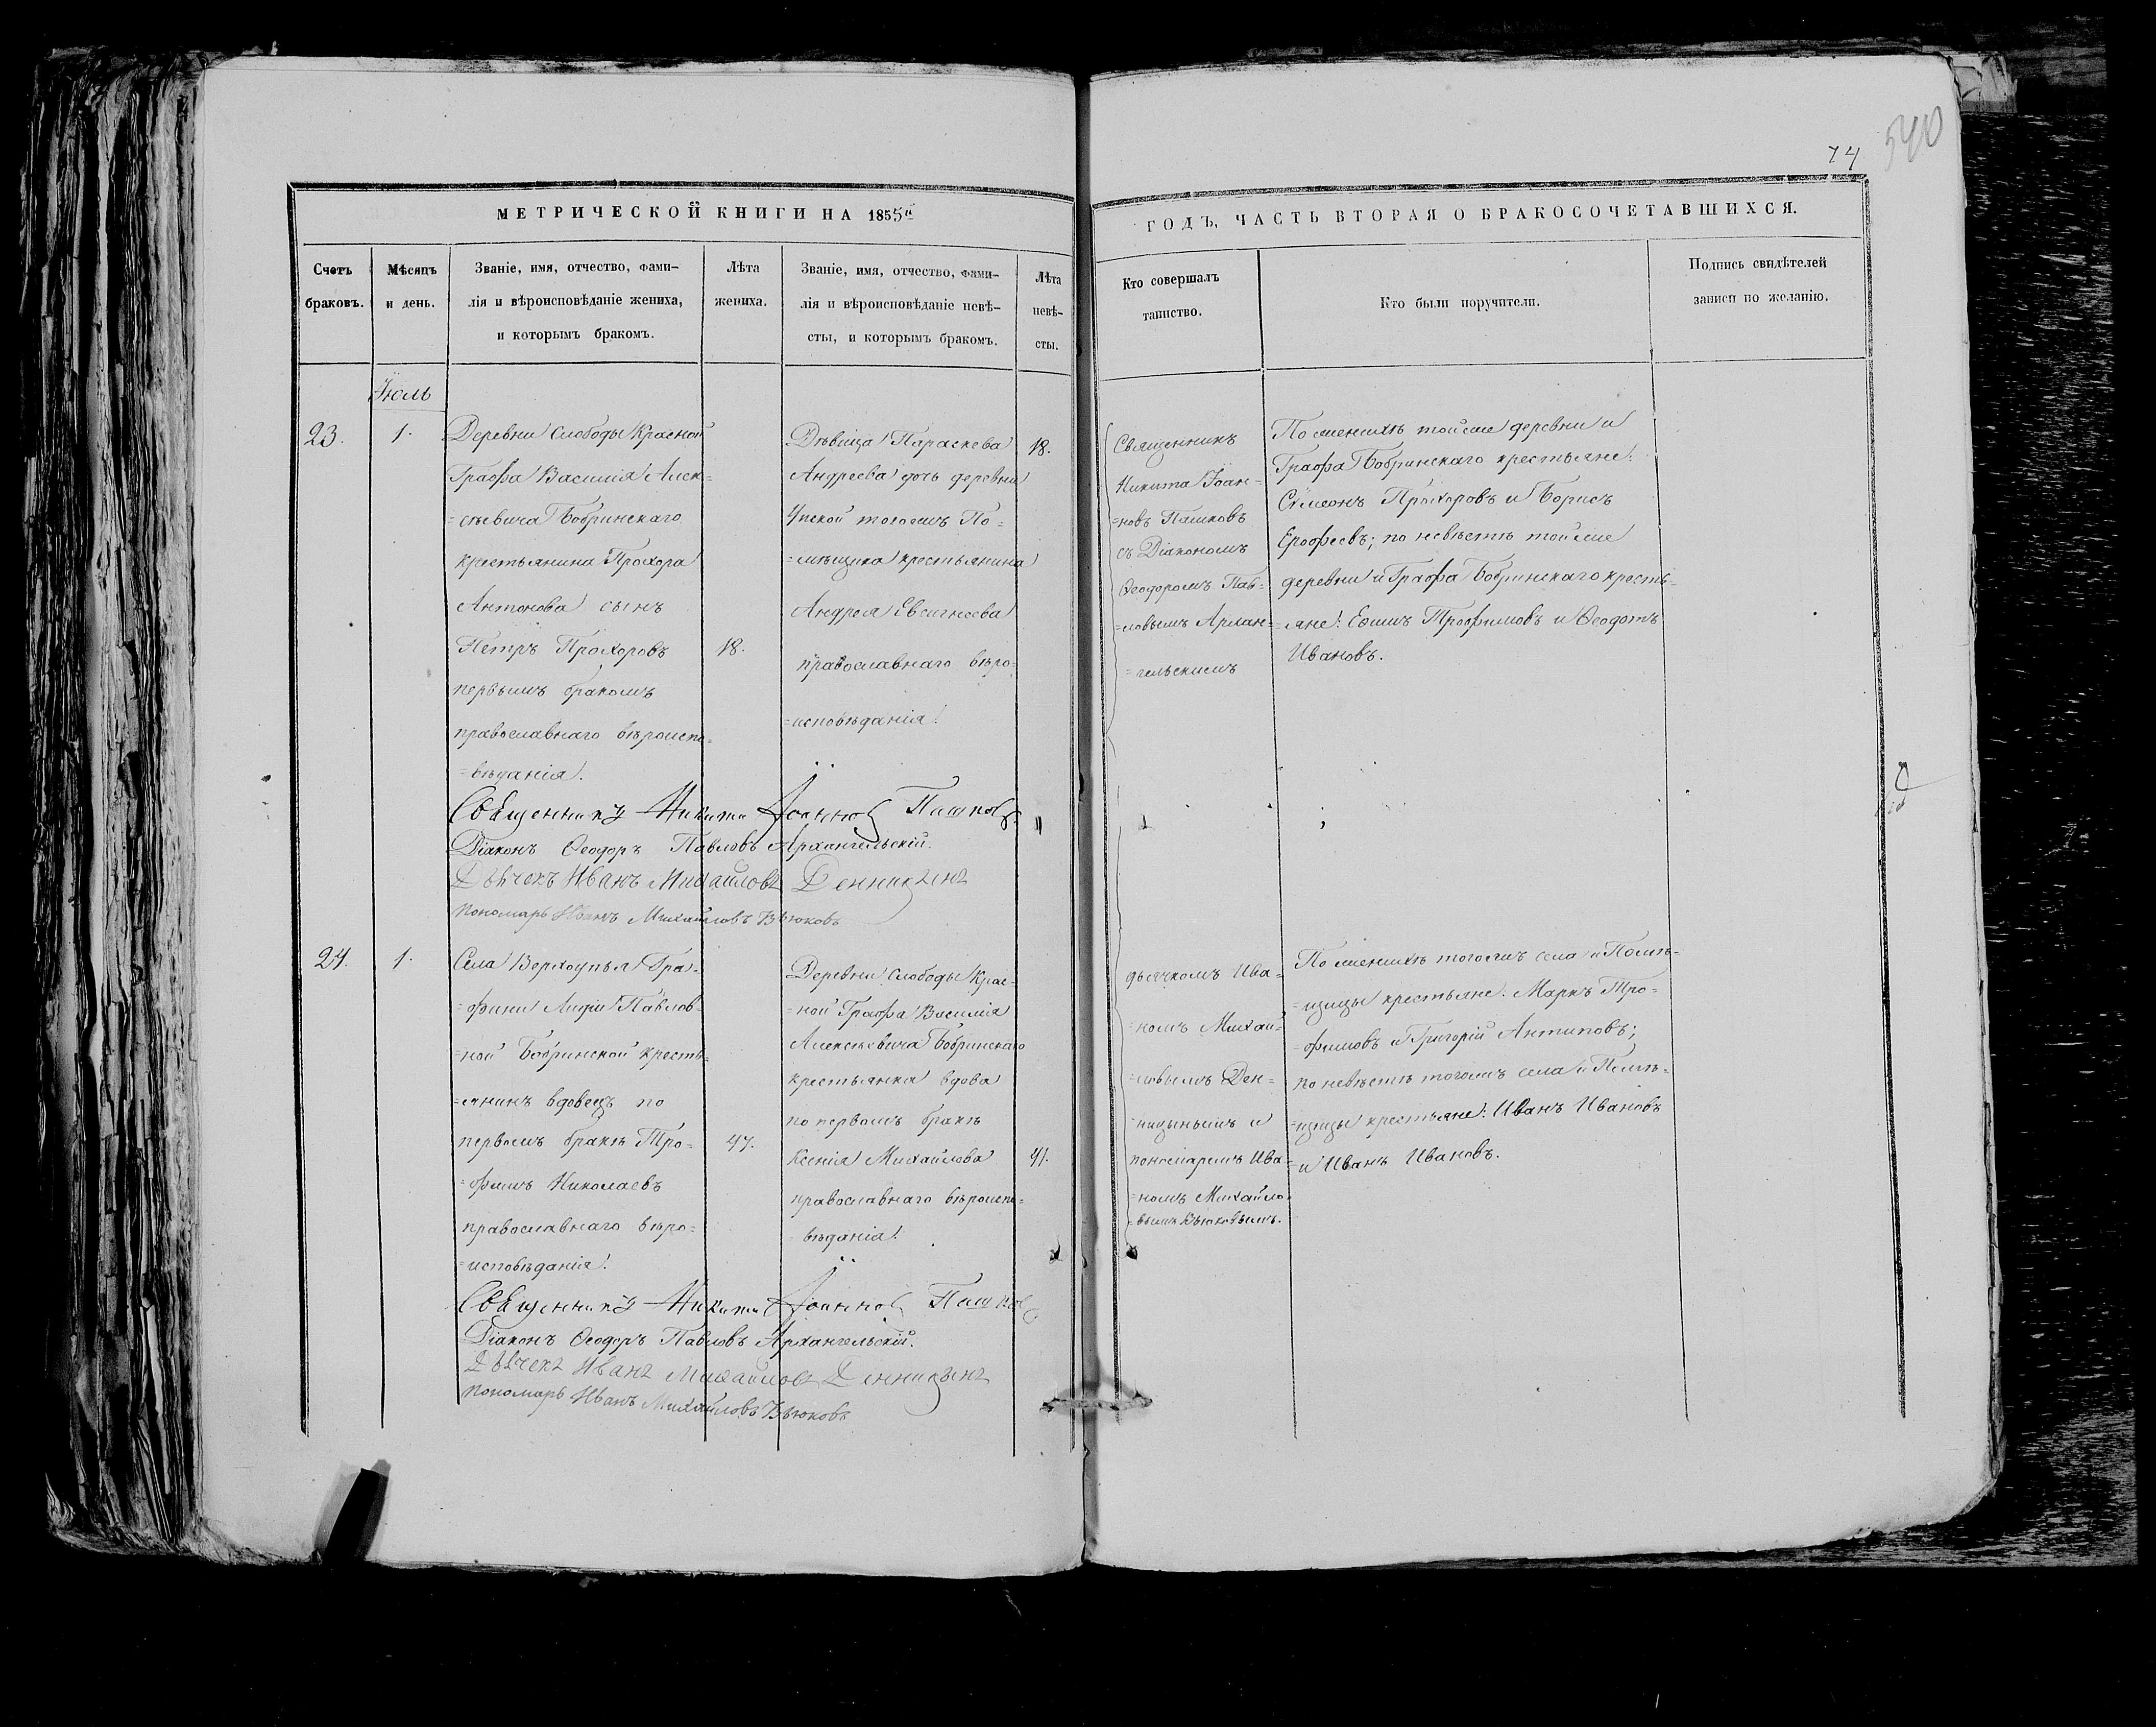 540
74
МЕТРИЧЕСКОЙ КНИГИ НА 1855й
ГОДЪ, ЧАСТЬ ВТОРАЯ О БРАКОСОЧЕТАВШИХСЯ.
Счетъ
браковъ.
Мѣсяцъ
и день.
Званіе, имя, отчество, фами-
лія и вѣроисповѣданіе жениха,
и которымъ бракомъ.
Лѣта
жениха.
Званіе, имя, отчество, фами-
лія и вѣроисповѣданіе невѣ-
сты, и которымъ бракомъ.
Лѣта
невѣ-
сты.
Кто совершалъ
таинство.
Кто были поручители.
Подпись свидѣтелей
записи по желанію.
Іюль
23.
1.
Деревни Слободы Красной
Графа Василія Алек-
=сѣевича Бобринскаго
крестьянина Прохора
Антонова сынъ
Петръ Прохоровъ
первымъ бракомъ
православнаго вѣроиспо-
=вѣданія.
18.
Дѣвица Параскева
Андреева дочь деревни
Упской тогожъ По-
=мѣщика крестьянина
Андрея Евсигнеева
православнаго вѣро-
=исповѣданія.
18.
Священникъ
Никита Іоан-
=новъ Пашковъ
съ Діакономъ
Ѳеодоромъ Пав-
=ловымъ Архан-
=гельскимъ
По женихѣ тойже деревни и
Графа Бобринскаго крестьяне:
Сѵмеонъ Прохоровъ и Борисъ
Ерофеевъ; по невѣстѣ тойже
деревни и Графа Бобринскаго кресть-
=яне: Ефимъ Трофимовъ и Ѳеодотъ
Ивановъ.
Священникъ Никита Іоанновъ Пашковъ.
Діаконъ Ѳеодоръ Павловъ Архангельскій.
Дьячекъ Иванъ Михайловъ Денницынъ
Пономарь Иванъ Михайловъ Вьюковъ
24.
1.
Села Верхоупья Гра-
=фини Лидіи Павлов-
=ной Бобринской кресть-
=янинъ вдовецъ по
первомъ бракѣ Тро-
=фимъ Николаевъ
православнаго вѣро-
=исповѣданія.
47.
Деревни Слободы Крас-
=ной Графа Василія
Алексѣевича Бобринскаго
крестьянка вдова
по первомъ бракѣ
Ксенія Михайлова
православнаго вѣроиспо-
=вѣданія.
41.
дьячкомъ Ива-
=номъ Михай-
=ловымъ Ден-
=ницынымъ и
пономаремъ Ива-
=номъ Михайло-
=вымъ Вьюковымъ.
По женихѣ тогожъ села и Помѣ-
=щицы крестьяне: Маркъ Тро-
=фимовъ и Григорій Антиповъ;
по невѣстѣ тогожъ села и Помѣ-
=щицы крестьяне: Иванъ Ивановъ
и Иванъ Ивановъ.
Священникъ Никита Іоанновъ Пашковъ
Діаконъ Ѳеодоръ Павловъ Архангельскій.
Дьячекъ Иванъ Михайловъ Денницынъ
Пономарь Иванъ Михайловъ Вьюковъ